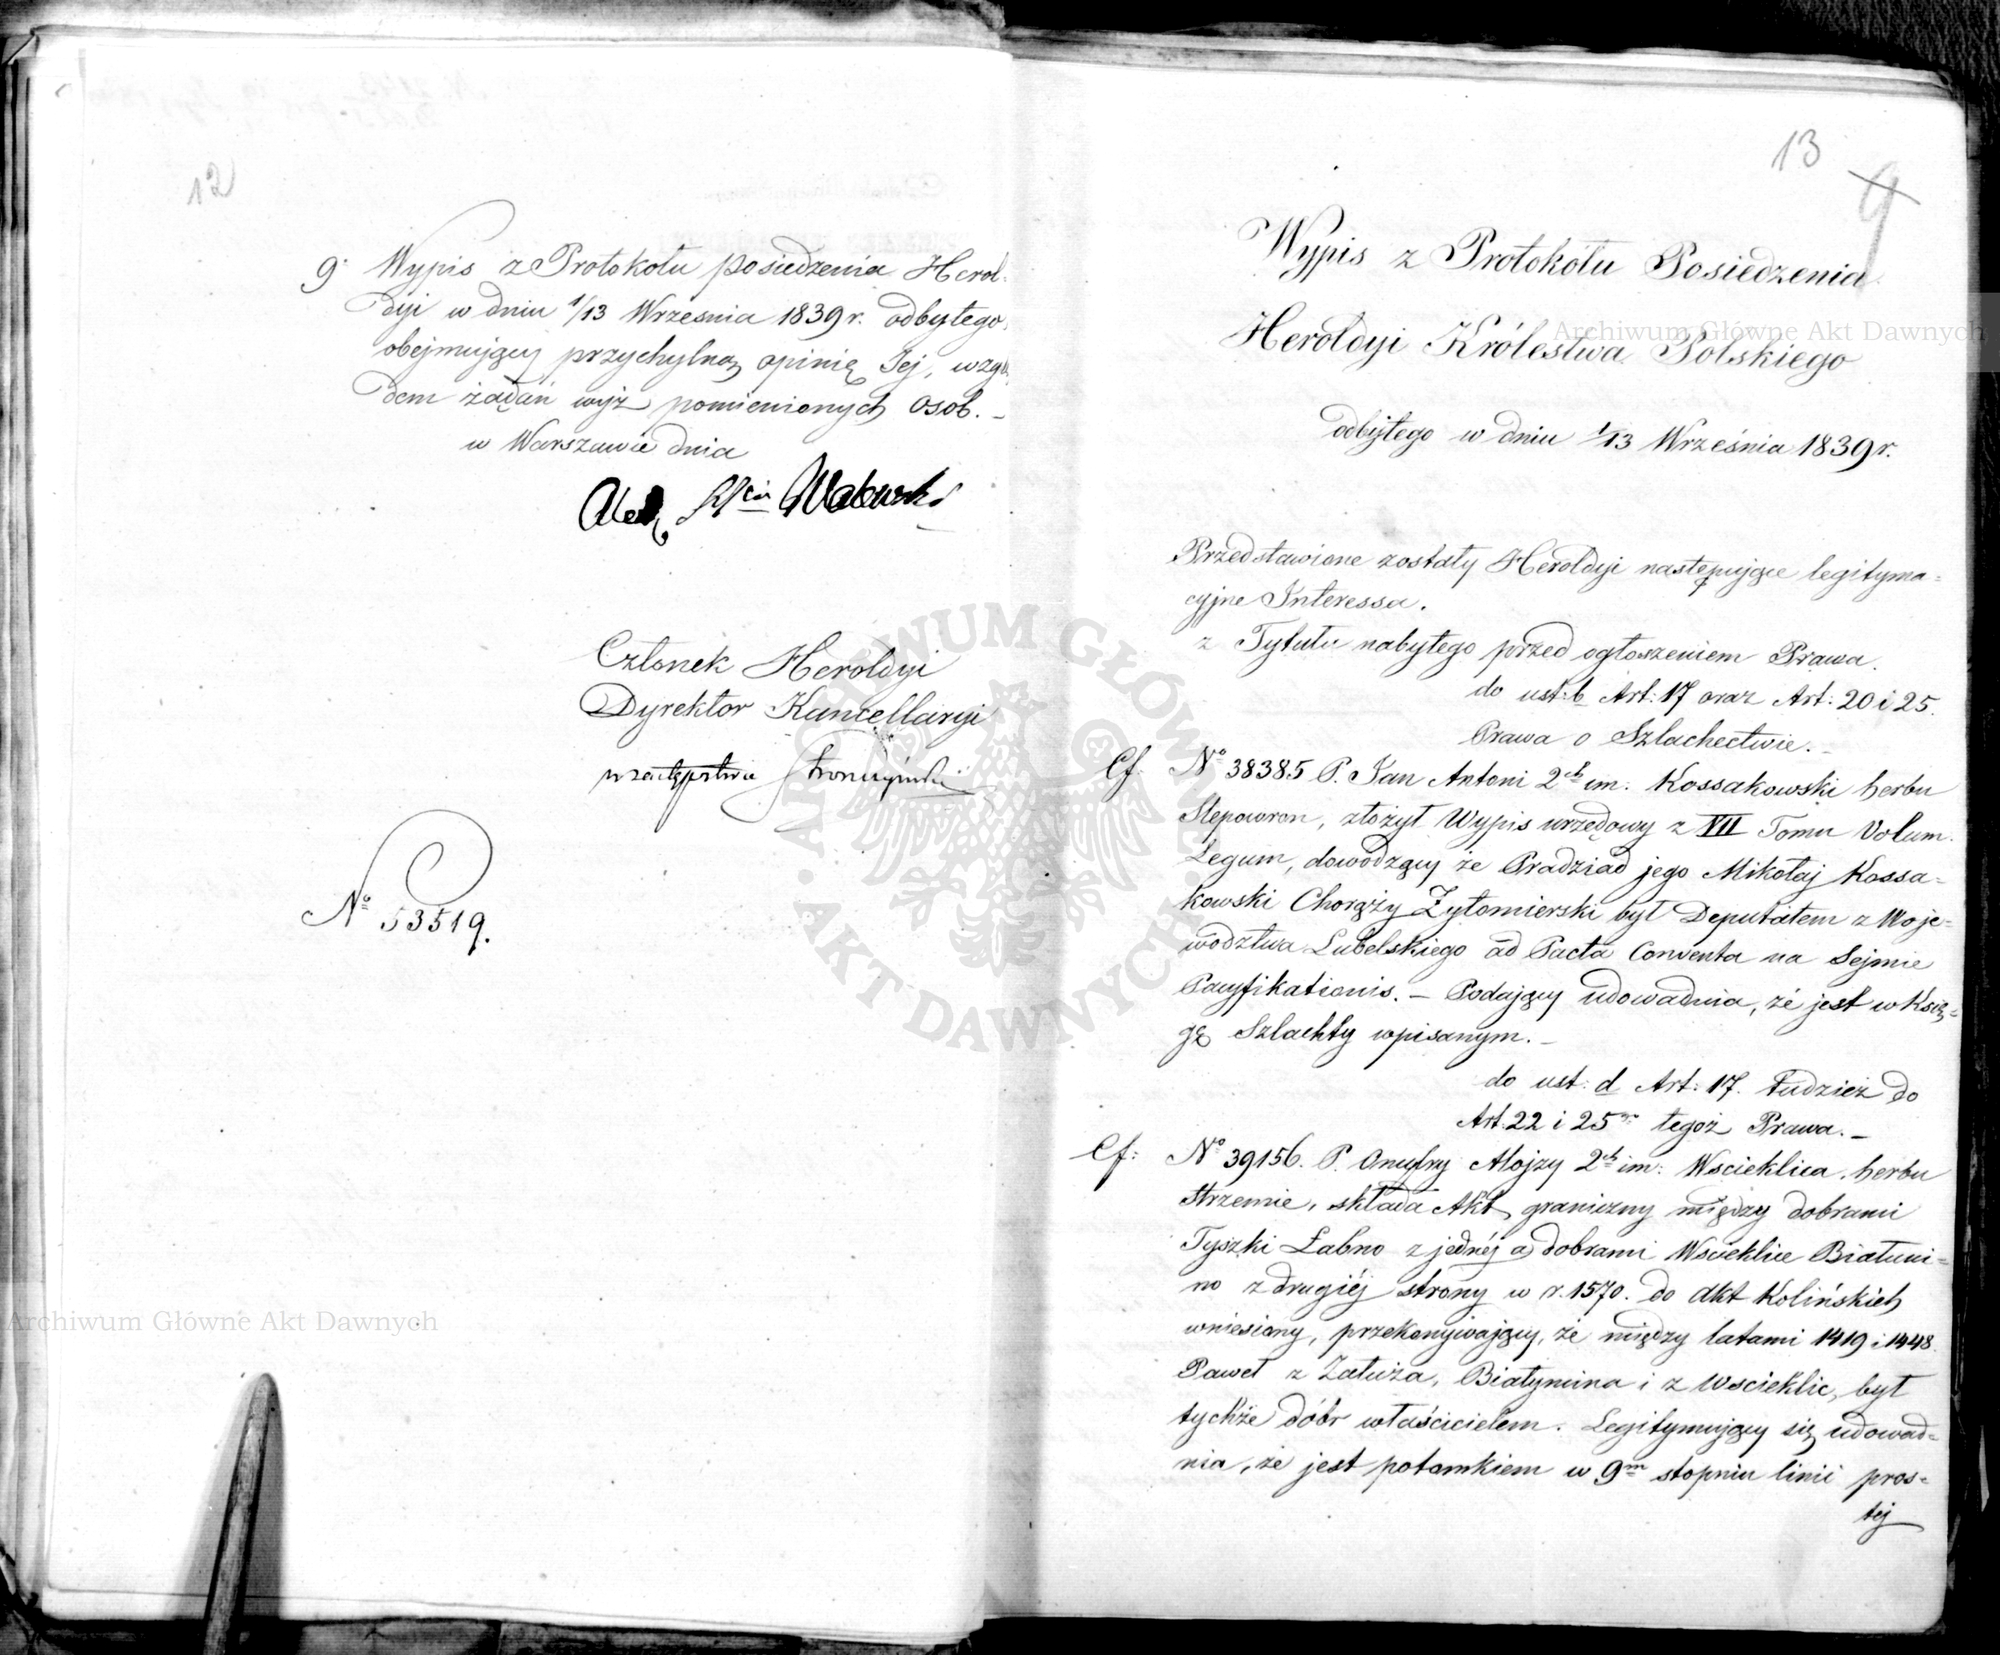 12
9. Wypis z Protokołu posiedzenia Herol-
dyi w dniu 1/13 Wrzesnia 1839 r. odbytego,
obejmujący przychylną opinię Jej, wzglę
dem żądań wyż pomienionych osób. –
w Warszawie dnia
Walewski
Członek Heroldyi
Dyrektor Kancellaryi
w zastępstwie Stronczyński
No 53519.
13
9
Wypis z Protokołu Posiedzenia
Heroldyi Królestwa Polskiego
odbytego w dniu 1/13 Września 1839 r.
Przedstawione zostały Heroldyi następujące legityma=
cyjne Interessa.
z Tytułu nabytego przed ogłoszeniem Prawa.
do ust: b Art: 17 oraz Art: 20 i 25.
Prawa o Szlachectwie. –
Cf. No 38385 P. Jan Antoni 2ch im: Kossakowski herbu
Slepowron, złożył Wypis urzędowy z VII Tomu Volum.
Legum, dowodzący że Pradziad jego Mikołaj Kossa=
kowski Chorąży Żytomierski był Deputatem z Woje=
wództwa Lubelskiego ad Pacta Conventa na Sejmie
Pacyfikationis. – Podający udowadnia, że jest w Księ=
gę Szlachty wpisanym. –
do ust: d Art: 17. tudzież do
Art. 22 i 25 tegoż Prawa. –
Cf: No 39156. P. Onufry Alojzy 2ch im: Wscieklica, herbu
Strzemie, składa Akt graniczny między dobrami
Tyszki Łabno z jednéj a dobrami Wscieklice Białuni=
no z drugiéj strony w r. 1570. do Akt Kolińskich
wniesiony, przekonywający, że między latami 1419 i 1448.
Paweł z Załuża, Białynina i z Wscieklic, był
tychże dóbr właścicielem. Legitymujący się udowad=
nia, że jest potomkiem w 9m stopniu linii pros=
tej
Archiwum Główne Akt Dawnych
Archiwum Główne Akt Dawnych
ARCHIWUM GŁÓWNE · AKT DAWNYCH ·